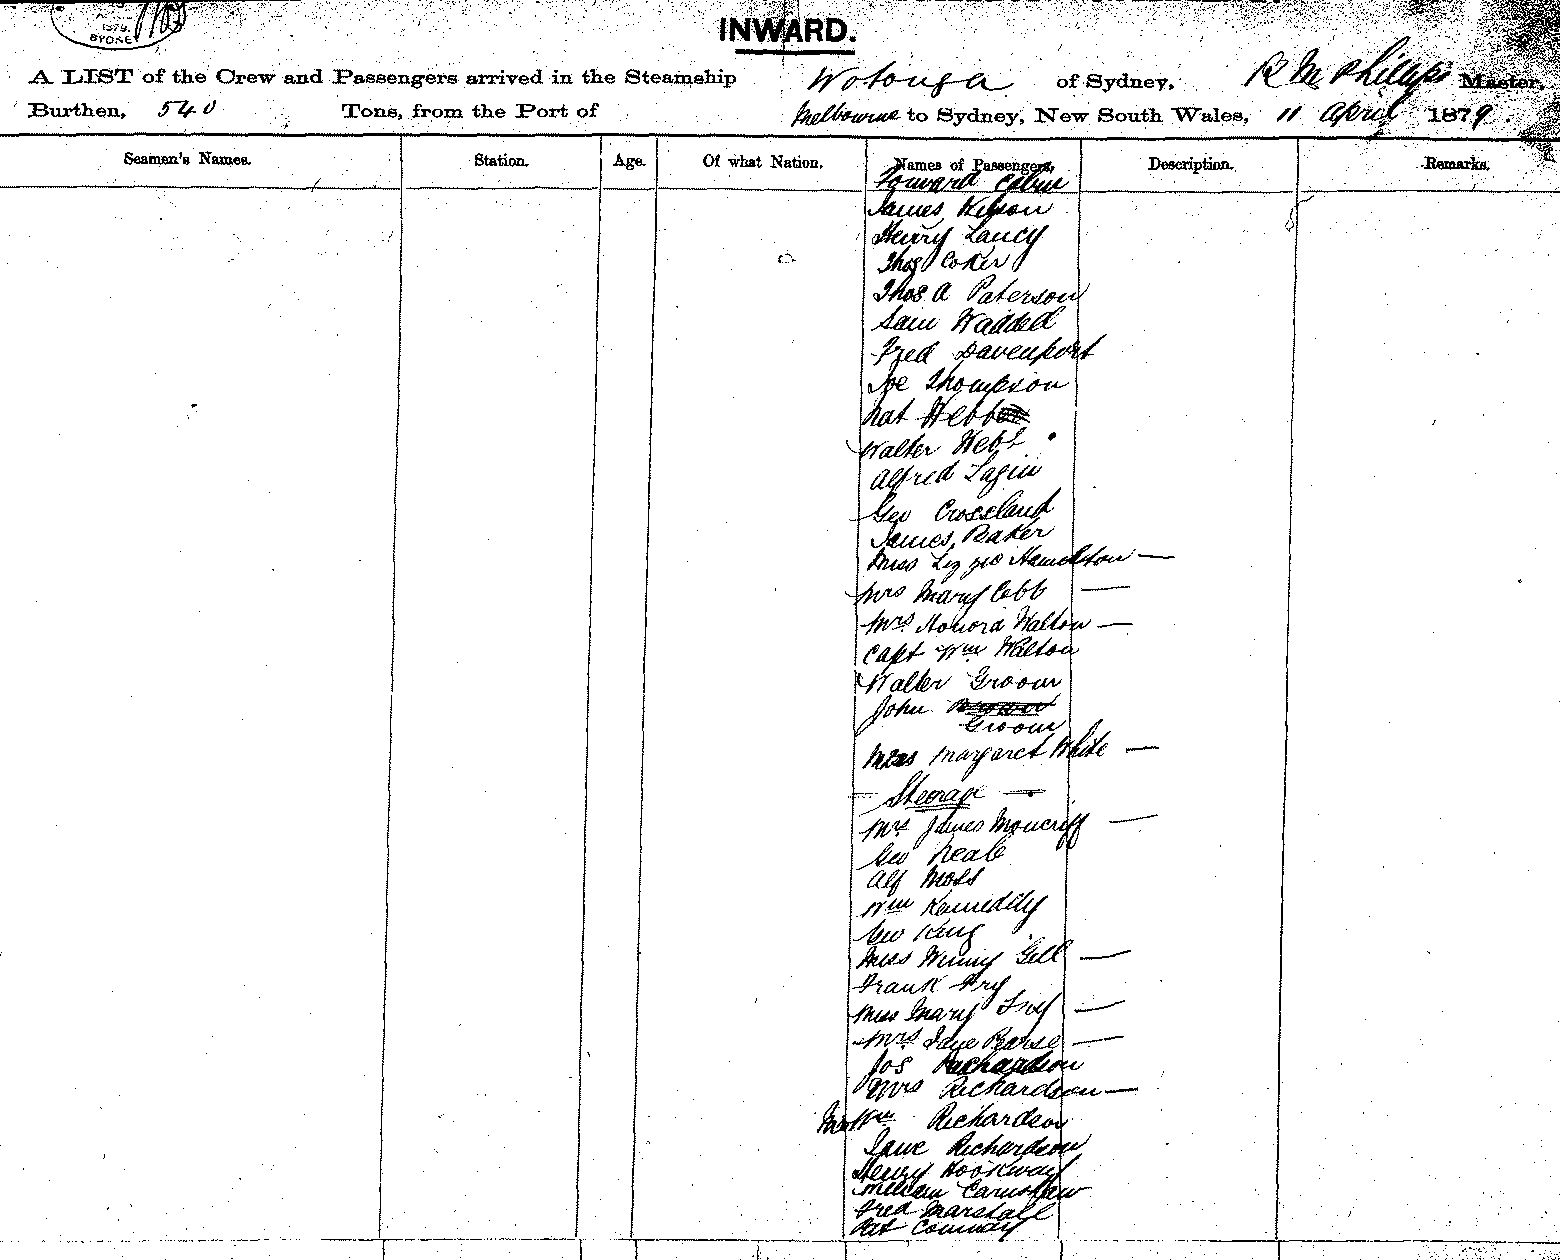 1879.
SYDNEY
INWARD.
A LIST of the Crew and Passengers arrived in the Steamship Wotonga of Sydney, R M Phillips Master,
Burthen, 540 Tons, from the Port of Melbourne to Sydney, New South Wales, 11 April 1879.
Seamen's Names. Station. Age. Of what Nation. Names of Passengers, Description. Remarks.
James
Henry
Thos Coker
Thos A Paterson
Sam Waddell
Fred Davenport
Joe Thompson
Nat Webb
Walter Webb
Alfred
Geo Crossland
James Baker
Miss Lizzie Hamilton —
Mrs Mary Cobb —
Mrs. Honora Walton —
Capt Wm Walton
Walter Groom
John Brown
Groom
Margaret White —
— Steerage —
Mrs James Moncriff —
Geo Neale
Alf Moss
Wm Kennedy
Geo King
Miss Gill —
Frank Fry
Miss Mary —
Mrs. Jane Pearse —
Jos Richardson
Mrs Richardson —
Wm Richardson
Jane Richardson
Henry Hookway
William
Fred Marshall
Pat Conway